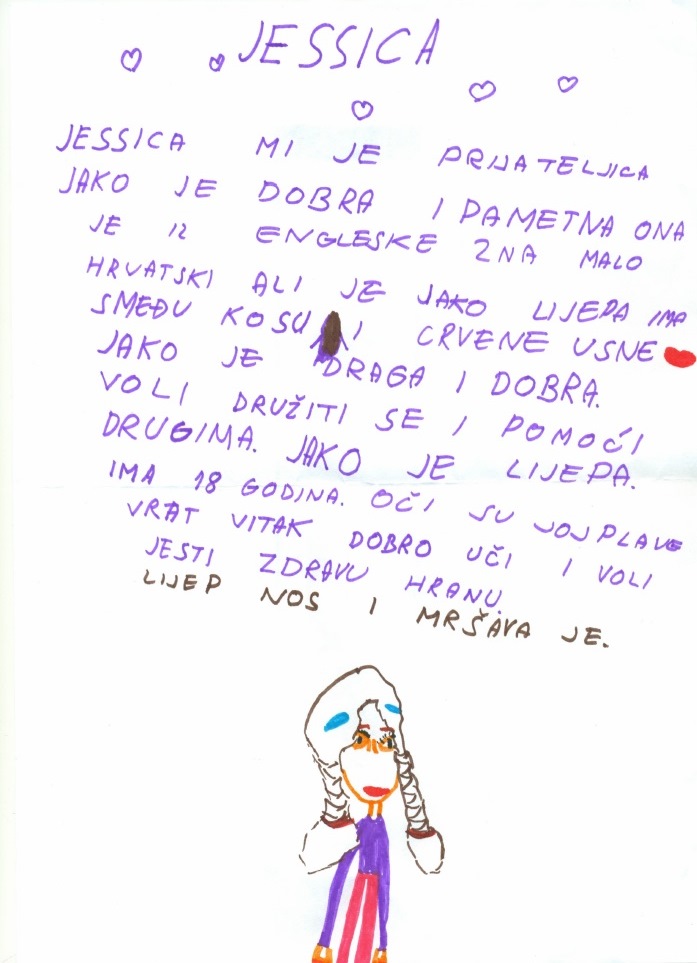 JESSICA
JESSICA MI JE PRIJATELJICA
JAKO JE DOBRA I PAMETNA ONA
JE IZ ENGLESKE ZNA MALO
HRVATSKI ALI JE JAKO LIJEPA IMA
SMEĐU KOSU I CRVENE USNE
JAKO JE DRAGA I DOBRA.
VOLI DRUŽITI SE I POMOĆI
DRUGIMA. JAKO JE LIJEPA.
IMA 18 GODINA. OČI SU JOJ PLAVE
VRAT VITAK DOBRO UČI I VOLI
JESTI ZDRAVU HRANU.
LIJEP NOS I MRŠAVA JE.